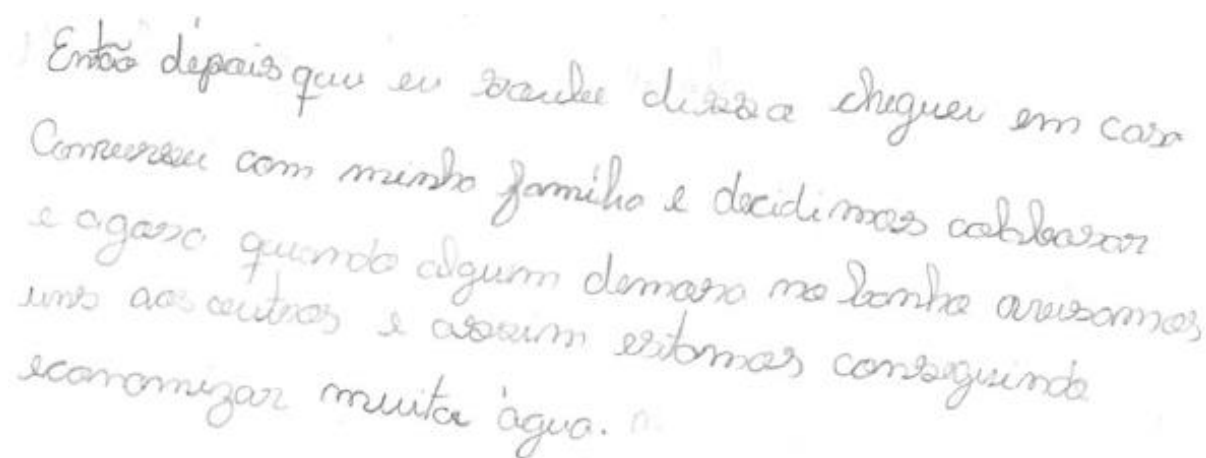 Então depois que eu soube dissa cheguei em casa
Conversei com minha família e decidimos colaborar
e agora quando algum demora no banho avisamos
uns aos outros e assim estamos conseguindo
economizar muita água.